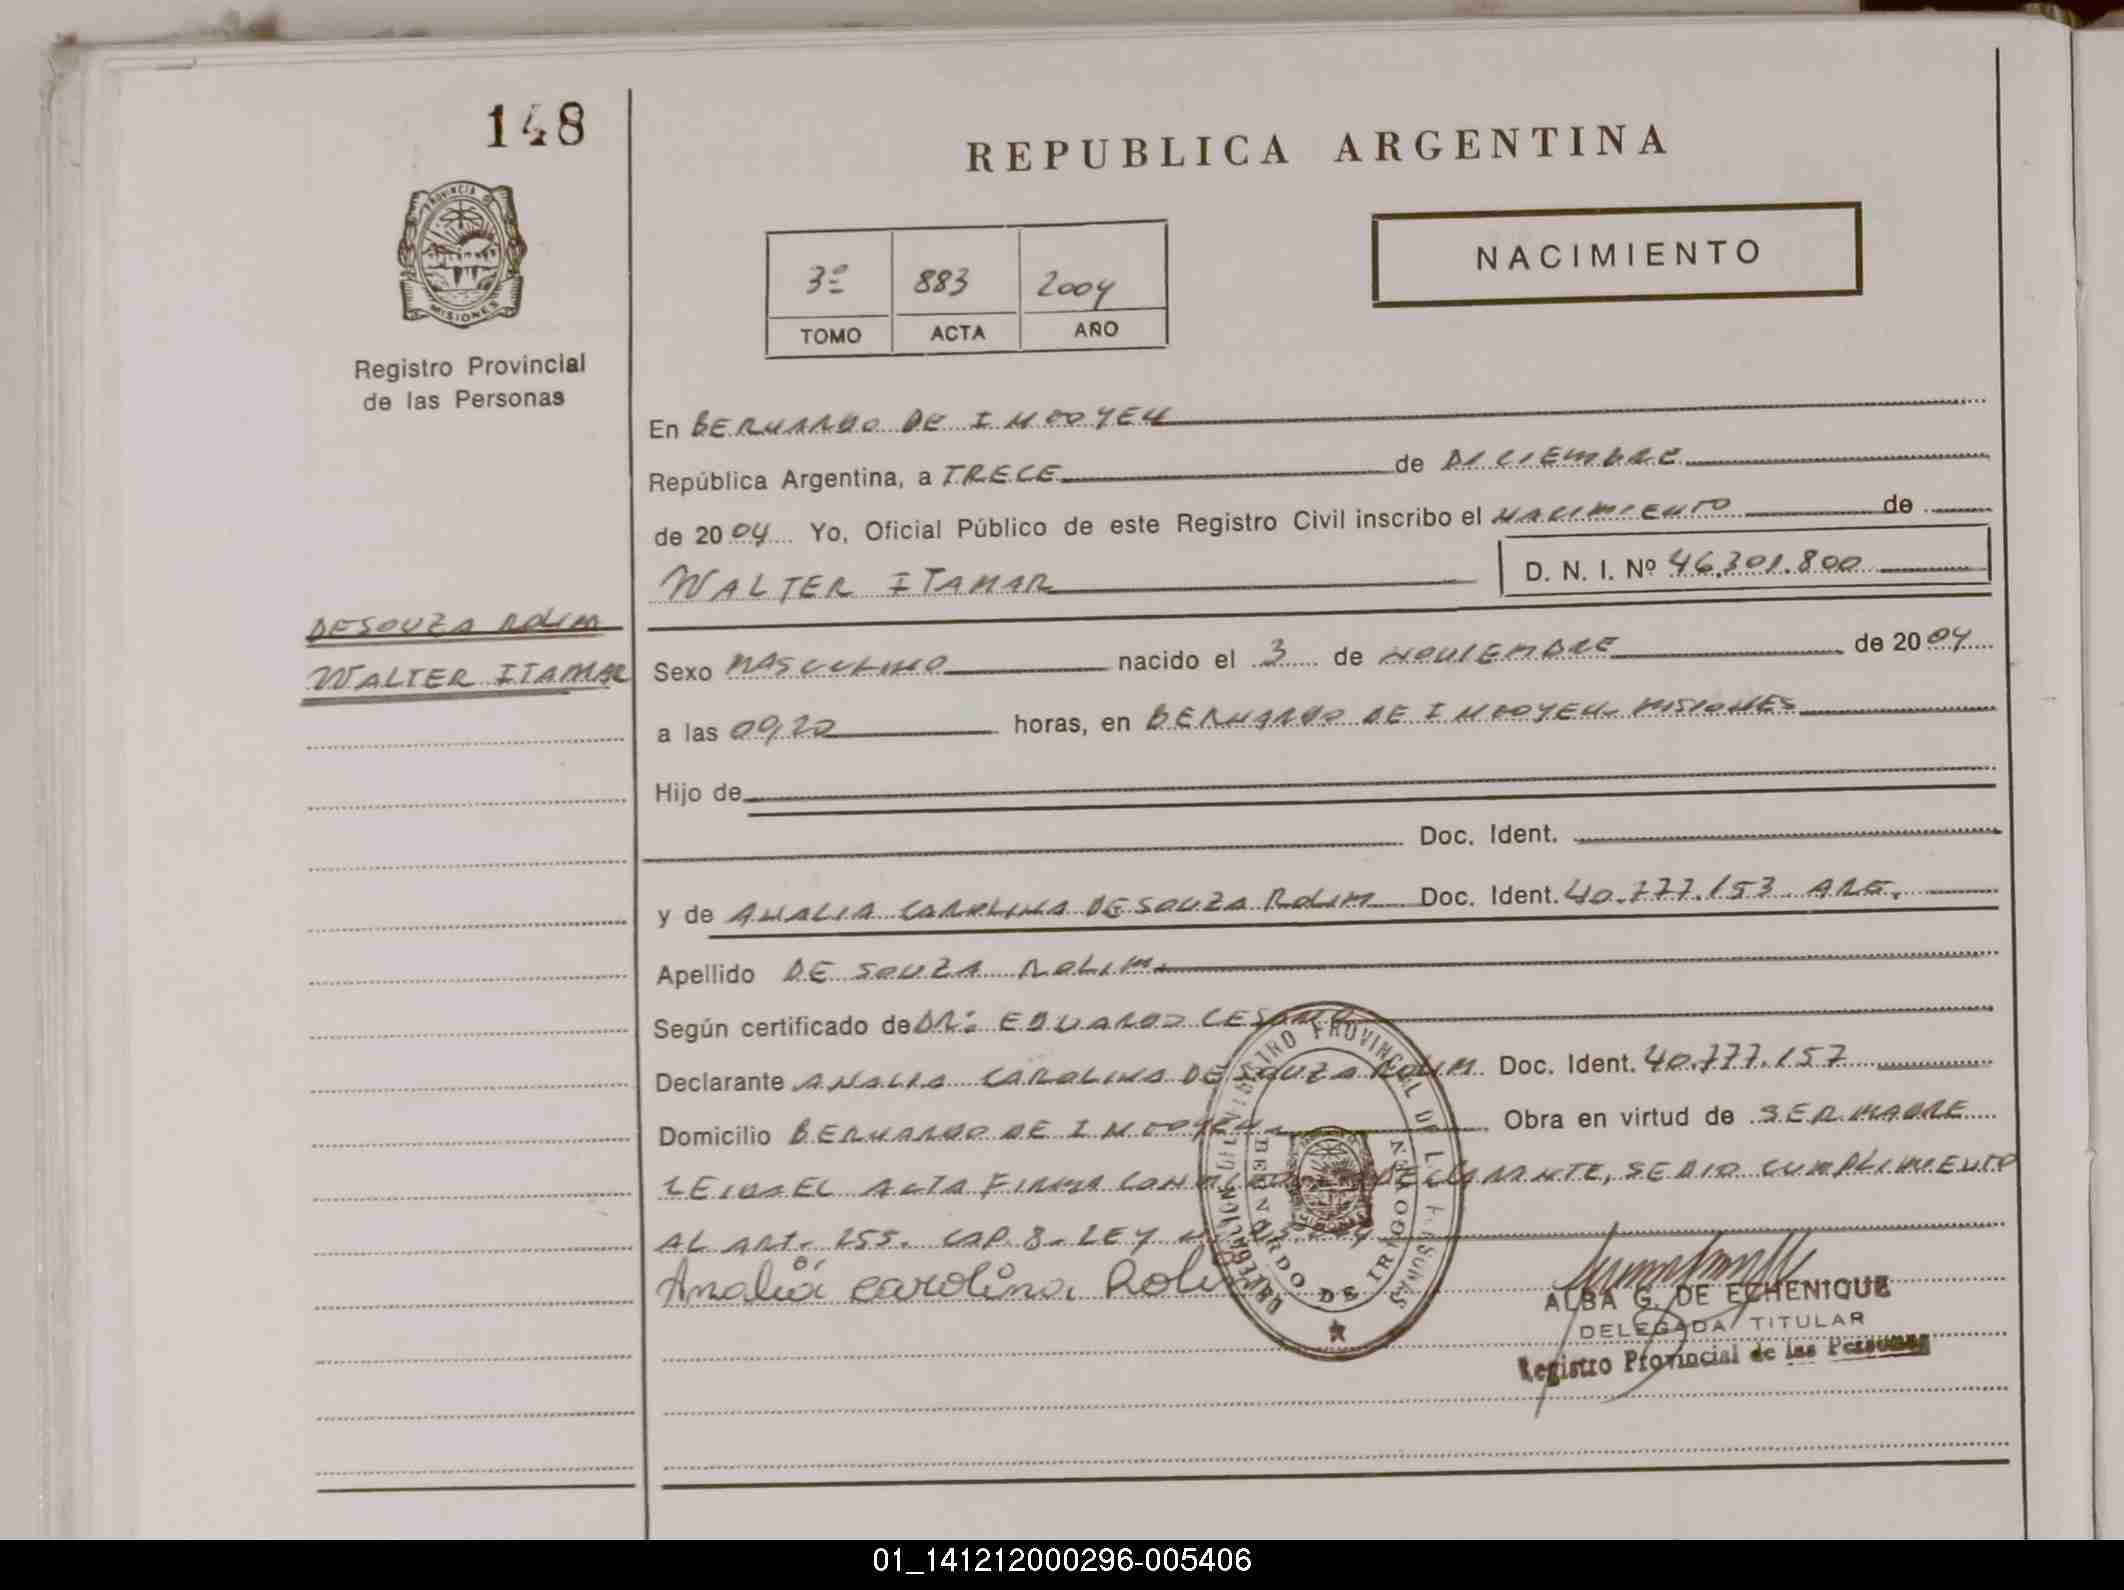 148
REPUBLICA ARGENTINA
PROVINCIA
MISIONES
Registro Provincial
de las Personas
3º 883 2004
TOMO ACTA AÑO
NACIMIENTO
En BERNARDO DE IRIGOYEN
República Argentina, a TRECE de DICIEMBRE
de 2004 Yo, Oficial Público de este Registro Civil inscribo el NACIMIENTO de
WALTER ITAMAR D. N. I. Nº 46.301.800
DESOUZA ROLIM
WALTER ITAMAR
Sexo MASCULINO nacido el 3 de NOVIEMBRE de 2004
a las 09,20 horas, en BERNARDO DE IRIGOYEN- MISIONES
Hijo de
Doc. Ident.
y de ANALIA CAROLINA DE SOUZA ROLIM Doc. Ident. 40.777.153 ARG.
Apellido DE SOUZA ROLIM
Según certificado de DR: EDUARDO CESANO
Declarante ANALIA CAROLINA DE SOUZA ROLIM Doc. Ident. 40.777.157
Domicilio BERNARDO DE IRIGOYEN Obra en virtud de SER MADRE
LEIDA EL ACTA FIRMA CONMIGO DECLARANTE, SE DIO CUMPLIMIENTO
AL ART. 255. CAP. 8. LEY
Analia carolina Rolim
REGISTRO PROVINCIAL DE LAS PERSONAS
DELEGACION
BERNARDO DE IRIGOYEN
ALBA G. DE ECHENIQUE
DELEGADA TITULAR
Registro Provincial de las Personas
01_141212000296-005406